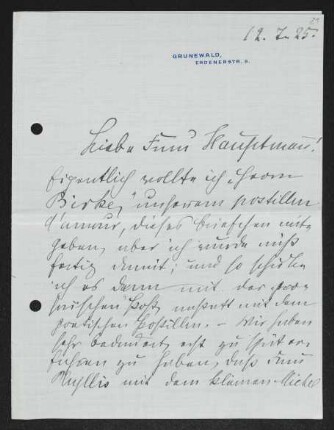 12. 7. 25.
GRUNEWALD,
ERDENERSTR. 8.
Liebe Frau Hauptmann!
Eigentlich wollte ich Herrn
Birke, unserem postillon
d'amour, dieses Briefchen mit-
geben, aber ich wurde nicht
fertig damit; und so schicke
ich es denn mit der pro-
saischen Post anstatt mit dem
poetischen Postillon. – Wir haben
sehr bedauert, erst zu spät er-
fahren zu haben, daß Frau
mit dem kleinen Michel